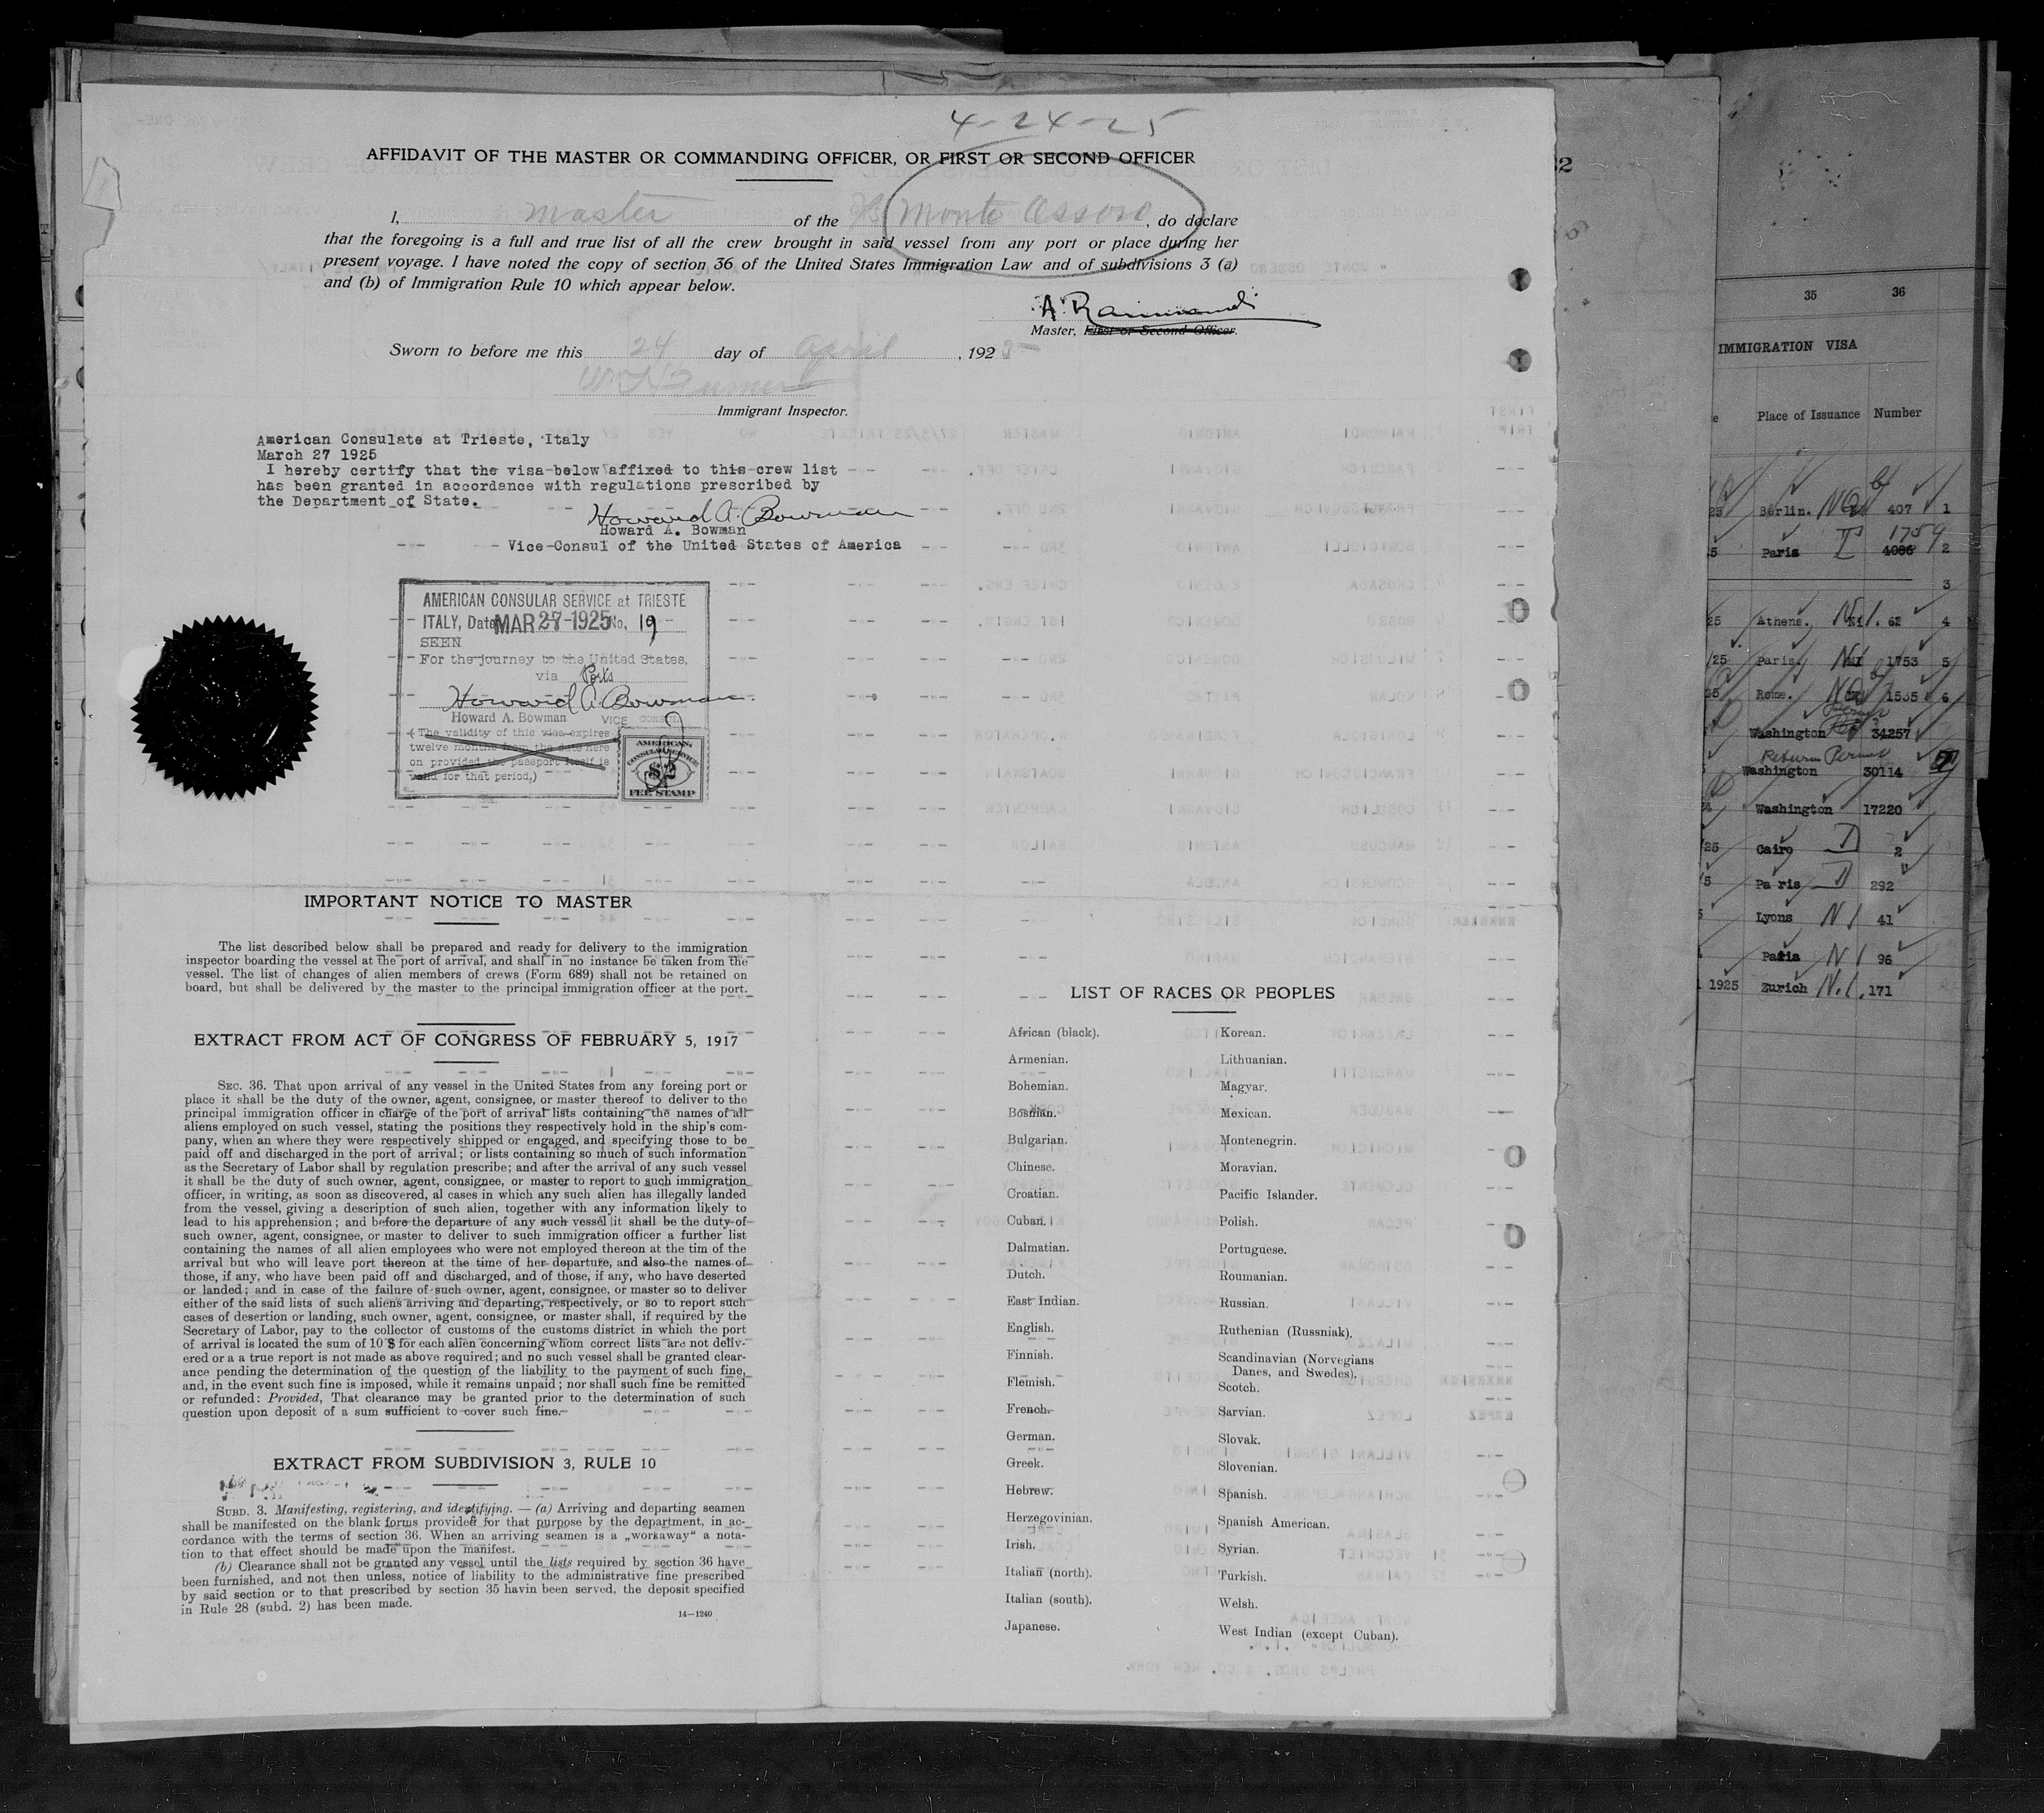 4-24-25
AFFIDAVIT OF THE MASTER OR COMMANDING OFFICER, OR FIRST OR SECOND OFFICER
I, master of the S/S Monte Ossero, do declare
that the foregoing is a full and true list of all the crew brought in said vessel from any port or place during her
present voyage. I have noted the copy of section 36 of the United States Immigration Law and of subdivisions 3 (a)
and (b) of Immigration Rule 10 which appear below.
A. Raimondi
Master, First or Second Officer.
Sworn to before me this 24 day of April, 1925
Immigrant Inspector.
American Consulate at Trieste, Italy
March 27 1925
I hereby certify that the visa below affixed to this crew list
has been granted in accordance with regulations prescribed by
the Department of State.
Howard A. Bowman
Howard A. Bowman
Vice-Consul of the United States of America
AMERICAN CONSULAR SERVICE at TRIESTE
ITALY, Date MAR 27 1925 No. 19
SEEN
For the journey to the United States,
via Ports
Howard A. Bowman
Howard A. Bowman VICE CONSUL
(The validity of this visa expires
twelve months from the date here
on provided the passport itself is
valid for that period,)
AMERICAN
CONSULAR SERVICE
$2
FEE STAMP
IMPORTANT NOTICE TO MASTER
The list described below shall be prepared and ready for delivery to the immigration
inspector boarding the vessel at the port of arrival, and shall in no instance be taken from the
vessel. The list of changes of alien members of crews (Form 689) shall not be retained on
board, but shall be delivered by the master to the principal immigration officer at the port.
EXTRACT FROM ACT OF CONGRESS OF FEBRUARY 5, 1917
SEC. 36. That upon arrival of any vessel in the United States from any foreing port or
place it shall be the duty of the owner, agent, consignee, or master thereof to deliver to the
principal immigration officer in charge of the port of arrival lists containing the names of all
aliens employed on such vessel, stating the positions they respectively hold in the ship's com-
pany, when an where they were respectively shipped or engaged, and specifying those to be
paid off and discharged in the port of arrival; or lists containing so much of such information
as the Secretary of Labor shall by regulation prescribe; and after the arrival of any such vessel
it shall be the duty of such owner, agent, consignee, or master to report to such immigration
officer, in writing, as soon as discovered, al cases in which any such alien has illegally landed
from the vessel, giving a description of such alien, together with any information likely to
lead to his apprehension; and before the departure of any such vessel it shall be the duty of
such owner, agent, consignee, or master to deliver to such immigration officer a further list
containing the names of all alien employees who were not employed thereon at the tim of the
arrival but who will leave port thereon at the time of her departure, and also the names of
those, if any, who have been paid off and discharged, and of those, if any, who have deserted
or landed; and in case of the failure of such owner, agent, consignee, or master so to deliver
either of the said lists of such aliens arriving and departing, respectively, or so to report such
cases of desertion or landing, such owner, agent, consignee, or master shall, if required by the
Secretary of Labor, pay to the collector of customs of the customs district in which the port
of arrival is located the sum of 10 $ for each alien concerning whom correct lists are not deliv-
ered or a a true report is not made as above required; and no such vessel shall be granted clear-
ance pending the determination of the question of the liability to the payment of such fine,
and, in the event such fine is imposed, while it remains unpaid; nor shall such fine be remitted
or refunded: Provided, That clearance may be granted prior to the determination of such
question upon deposit of a sum sufficient to cover such fine.
EXTRACT FROM SUBDIVISION 3, RULE 10
SUBD. 3. Manifesting, registering, and identifying. — (a) Arriving and departing seamen
shall be manifested on the blank forms provided for that purpose by the department, in ac-
cordance with the terms of section 36. When an arriving seamen is a „workaway“ a nota-
tion to that effect should be made upon the manifest.
(b) Clearance shall not be granted any vessel until the lists required by section 36 have
been furnished, and not then unless, notice of liability to the administrative fine prescribed
by said section or to that prescribed by section 35 havin been served, the deposit specified
in Rule 28 (subd. 2) has been made.
14—1240
LIST OF RACES OR PEOPLES
African (black).
Armenian.
Bohemian.
Bosnian.
Bulgarian.
Chinese.
Croatian.
Cuban.
Dalmatian.
Dutch.
East Indian.
English.
Finnish.
Flemish.
French.
German.
Greek.
Hebrew.
Herzegovinian.
Irish.
Italian (north).
Italian (south).
Japanese.
Korean.
Lithuanian.
Magyar.
Mexican.
Montenegrin.
Moravian.
Pacific Islander.
Polish.
Portuguese.
Roumanian.
Russian.
Ruthenian (Russniak).
Scandinavian (Norvegians
Danes, and Swedes).
Scotch.
Sarvian.
Slovak.
Slovenian.
Spanish.
Spanish American.
Syrian.
Turkish.
Welsh.
West Indian (except Cuban).
35 36
IMMIGRATION VISA
Place of Issuance Number
25 Berlin. NQ 407 1
5 Paris 1759 4086 2
3
25 Athens. 62 4
/25 Paris. 1753 5
25 Rome. NQ 1535 6
Washington 34257
Return Permit
Washington 30114
Washington 17220
25 Cairo 2
5 Paris 292
Lyons N 41
Paris N 96
1925 Zurich N.I. 171